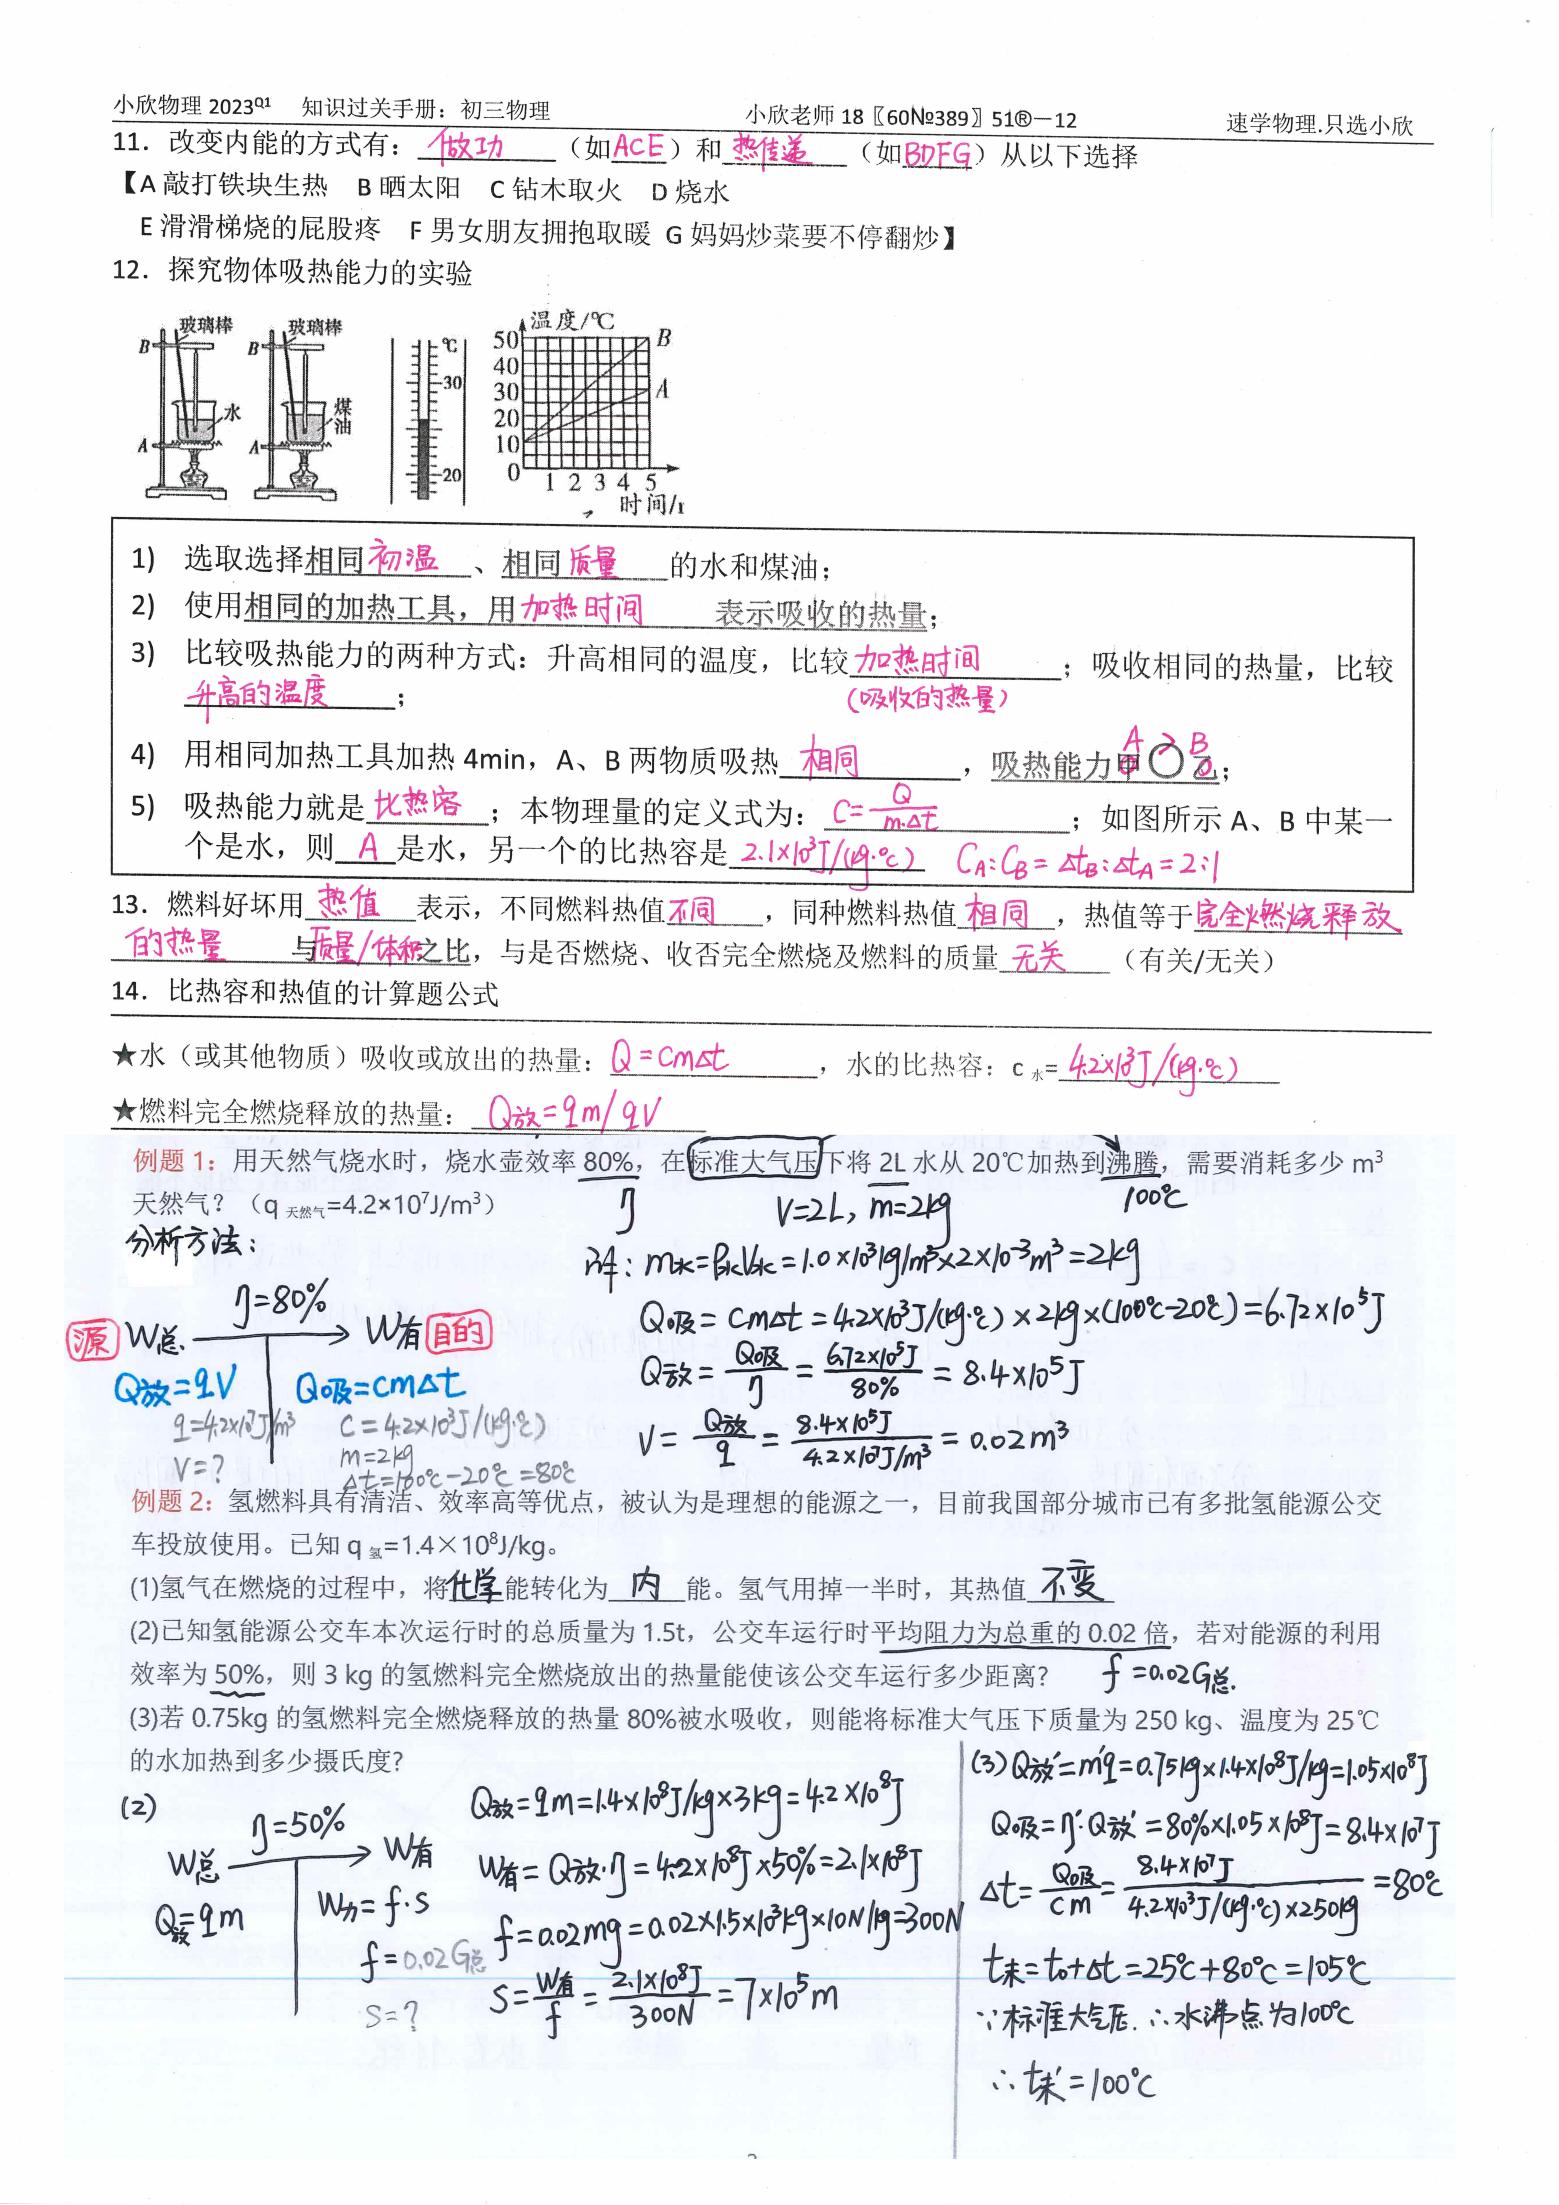 小欣物理 2023Q1 知识过关手册：初三物理 小欣老师 18〖60№389〗51®－12 速学物理.只选小欣
11．改变内能的方式有：做功（如ACE）和热传递（如BDFG）从以下选择
【A 敲打铁块生热 B 晒太阳 C 钻木取火 D 烧水
E 滑滑梯烧的屁股疼 F 男女朋友拥抱取暖 G 妈妈炒菜要不停翻炒】
12．探究物体吸热能力的实验
玻璃棒 B 水 A
玻璃棒 B 煤油 A
℃ 30 20
温度/℃ 50 40 30 20 10 0 B A
1 2 3 4 5
时间/
1) 选取选择相同初温、相同质量的水和煤油；
2) 使用相同的加热工具，用加热时间表示吸收的热量；
3) 比较吸热能力的两种方式：升高相同的温度，比较加热时间；吸收相同的热量，比较
升高的温度； （吸收的热量）
A > B
4) 用相同加热工具加热 4min，A、B 两物质吸热相同，吸热能力甲〇乙；
5) 吸热能力就是比热容；本物理量的定义式为：C=Q/m·Δt；如图所示 A、B 中某一
个是水，则 A 是水，另一个的比热容是 2.1×10³J/(kg·℃) CA:CB=ΔtB:ΔtA=2:1
13．燃料好坏用热值表示，不同燃料热值不同，同种燃料热值相同，热值等于完全燃烧释放
的热量与质量/体积之比，与是否燃烧、收否完全燃烧及燃料的质量无关（有关/无关）
14．比热容和热值的计算题公式
★水（或其他物质）吸收或放出的热量：Q=cmΔt，水的比热容：c水=4.2×10³J/(kg·℃)
★燃料完全燃烧释放的热量：Q放=qm/qV
例题 1：用天然气烧水时，烧水壶效率 80%，在标准大气压下将 2L 水从 20℃加热到沸腾，需要消耗多少 m³
天然气？（q 天然气=4.2×10⁷J/m³） η V=2L, m=2kg 100℃
分析方法：
解：m水=ρ水V水=1.0×10³kg/m³×2×10⁻³m³=2kg
η=80%
源 W总 W有 目的
Q放=qV Q吸=cmΔt
q=4.2×10⁷J/m³ C=4.2×10³J/(kg·℃)
V=? m=2kg
Δt=100℃-20℃=80℃
Q吸=cmΔt=4.2×10³J/(kg·℃)×2kg×(100℃-20℃)=6.72×10⁵J
Q放=Q吸/η=6.72×10⁵J/80%=8.4×10⁵J
V=Q放/q=8.4×10⁵J/4.2×10⁷J/m³=0.02m³
例题 2：氢燃料具有清洁、效率高等优点，被认为是理想的能源之一，目前我国部分城市已有多批氢能源公交
车投放使用。已知 q 氢=1.4×10⁸J/kg。
(1)氢气在燃烧的过程中，将化学能转化为内能。氢气用掉一半时，其热值不变
(2)已知氢能源公交车本次运行时的总质量为 1.5t，公交车运行时平均阻力为总重的 0.02 倍，若对能源的利用
效率为 50%，则 3 kg 的氢燃料完全燃烧放出的热量能使该公交车运行多少距离? f=0.02G总.
(3)若 0.75kg 的氢燃料完全燃烧释放的热量 80%被水吸收，则能将标准大气压下质量为 250 kg、温度为 25℃
的水加热到多少摄氏度?
(2)
η=50%
W总 W有
Q放=qm W有=f·s
f=0.02G总
S=?
Q放=qm=1.4×10⁸J/kg×3kg=4.2×10⁸J
W有=Q放·η=4.2×10⁸J×50%=2.1×10⁸J
f=0.02mg=0.02×1.5×10³kg×10N/kg=300N
S=W有/f=2.1×10⁸J/300N=7×10⁵m
(3)Q放'=m'q=0.75kg×1.4×10⁸J/kg=1.05×10⁸J
Q吸=η'·Q放'=80%×1.05×10⁸J=8.4×10⁷J
Δt=Q吸/cm=8.4×10⁷J/4.2×10³J/(kg·℃)×250kg=80℃
t末=t0+Δt=25℃+80℃=105℃
∵标准大气压.∴水沸点为100℃
∴t末'=100℃